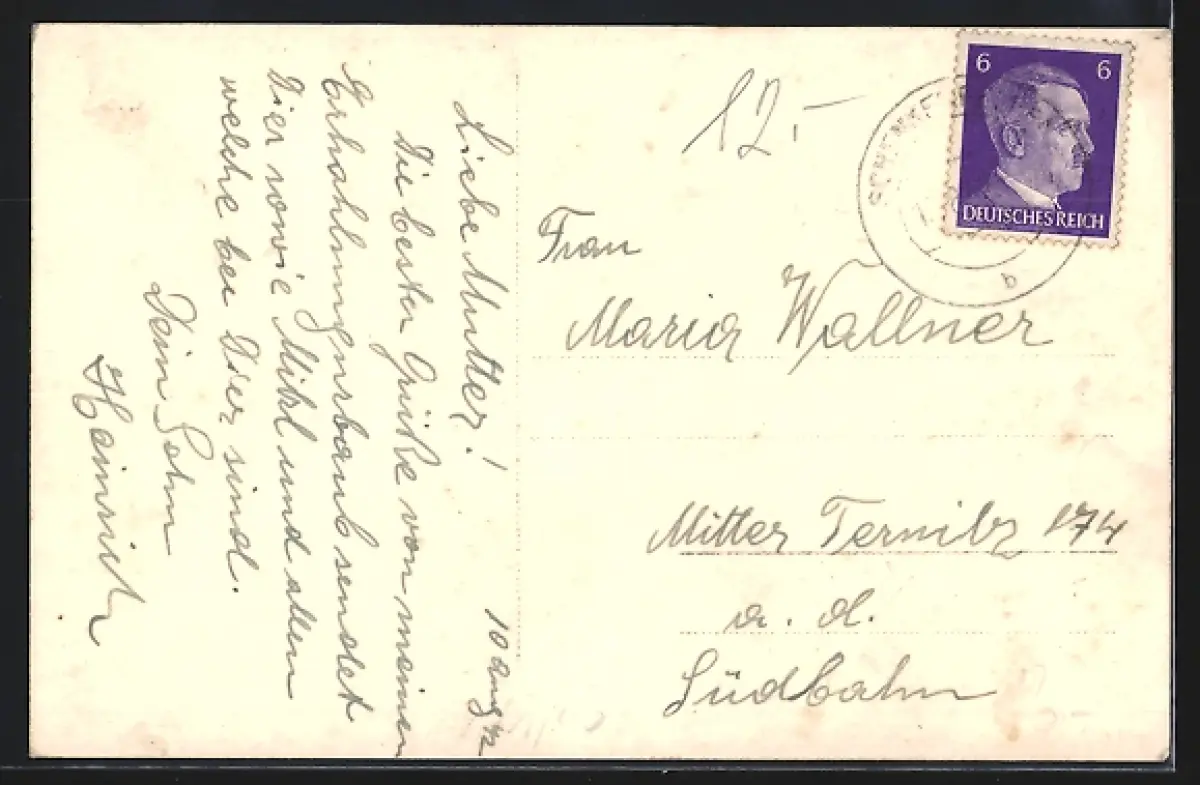 Liebe Mutter!
10 Aug 42
Die besten Grüße von meinen
Erhohlungsurlaub sendet
Dier sowie Mitzl und allen
welche bei Dier sind.
Dein Sohn
Heinrich
12.-
6 6
DEUTSCHES REICH
Frau
Maria Wallner
Mitter Ternitz 174
a. d.
Südbahn